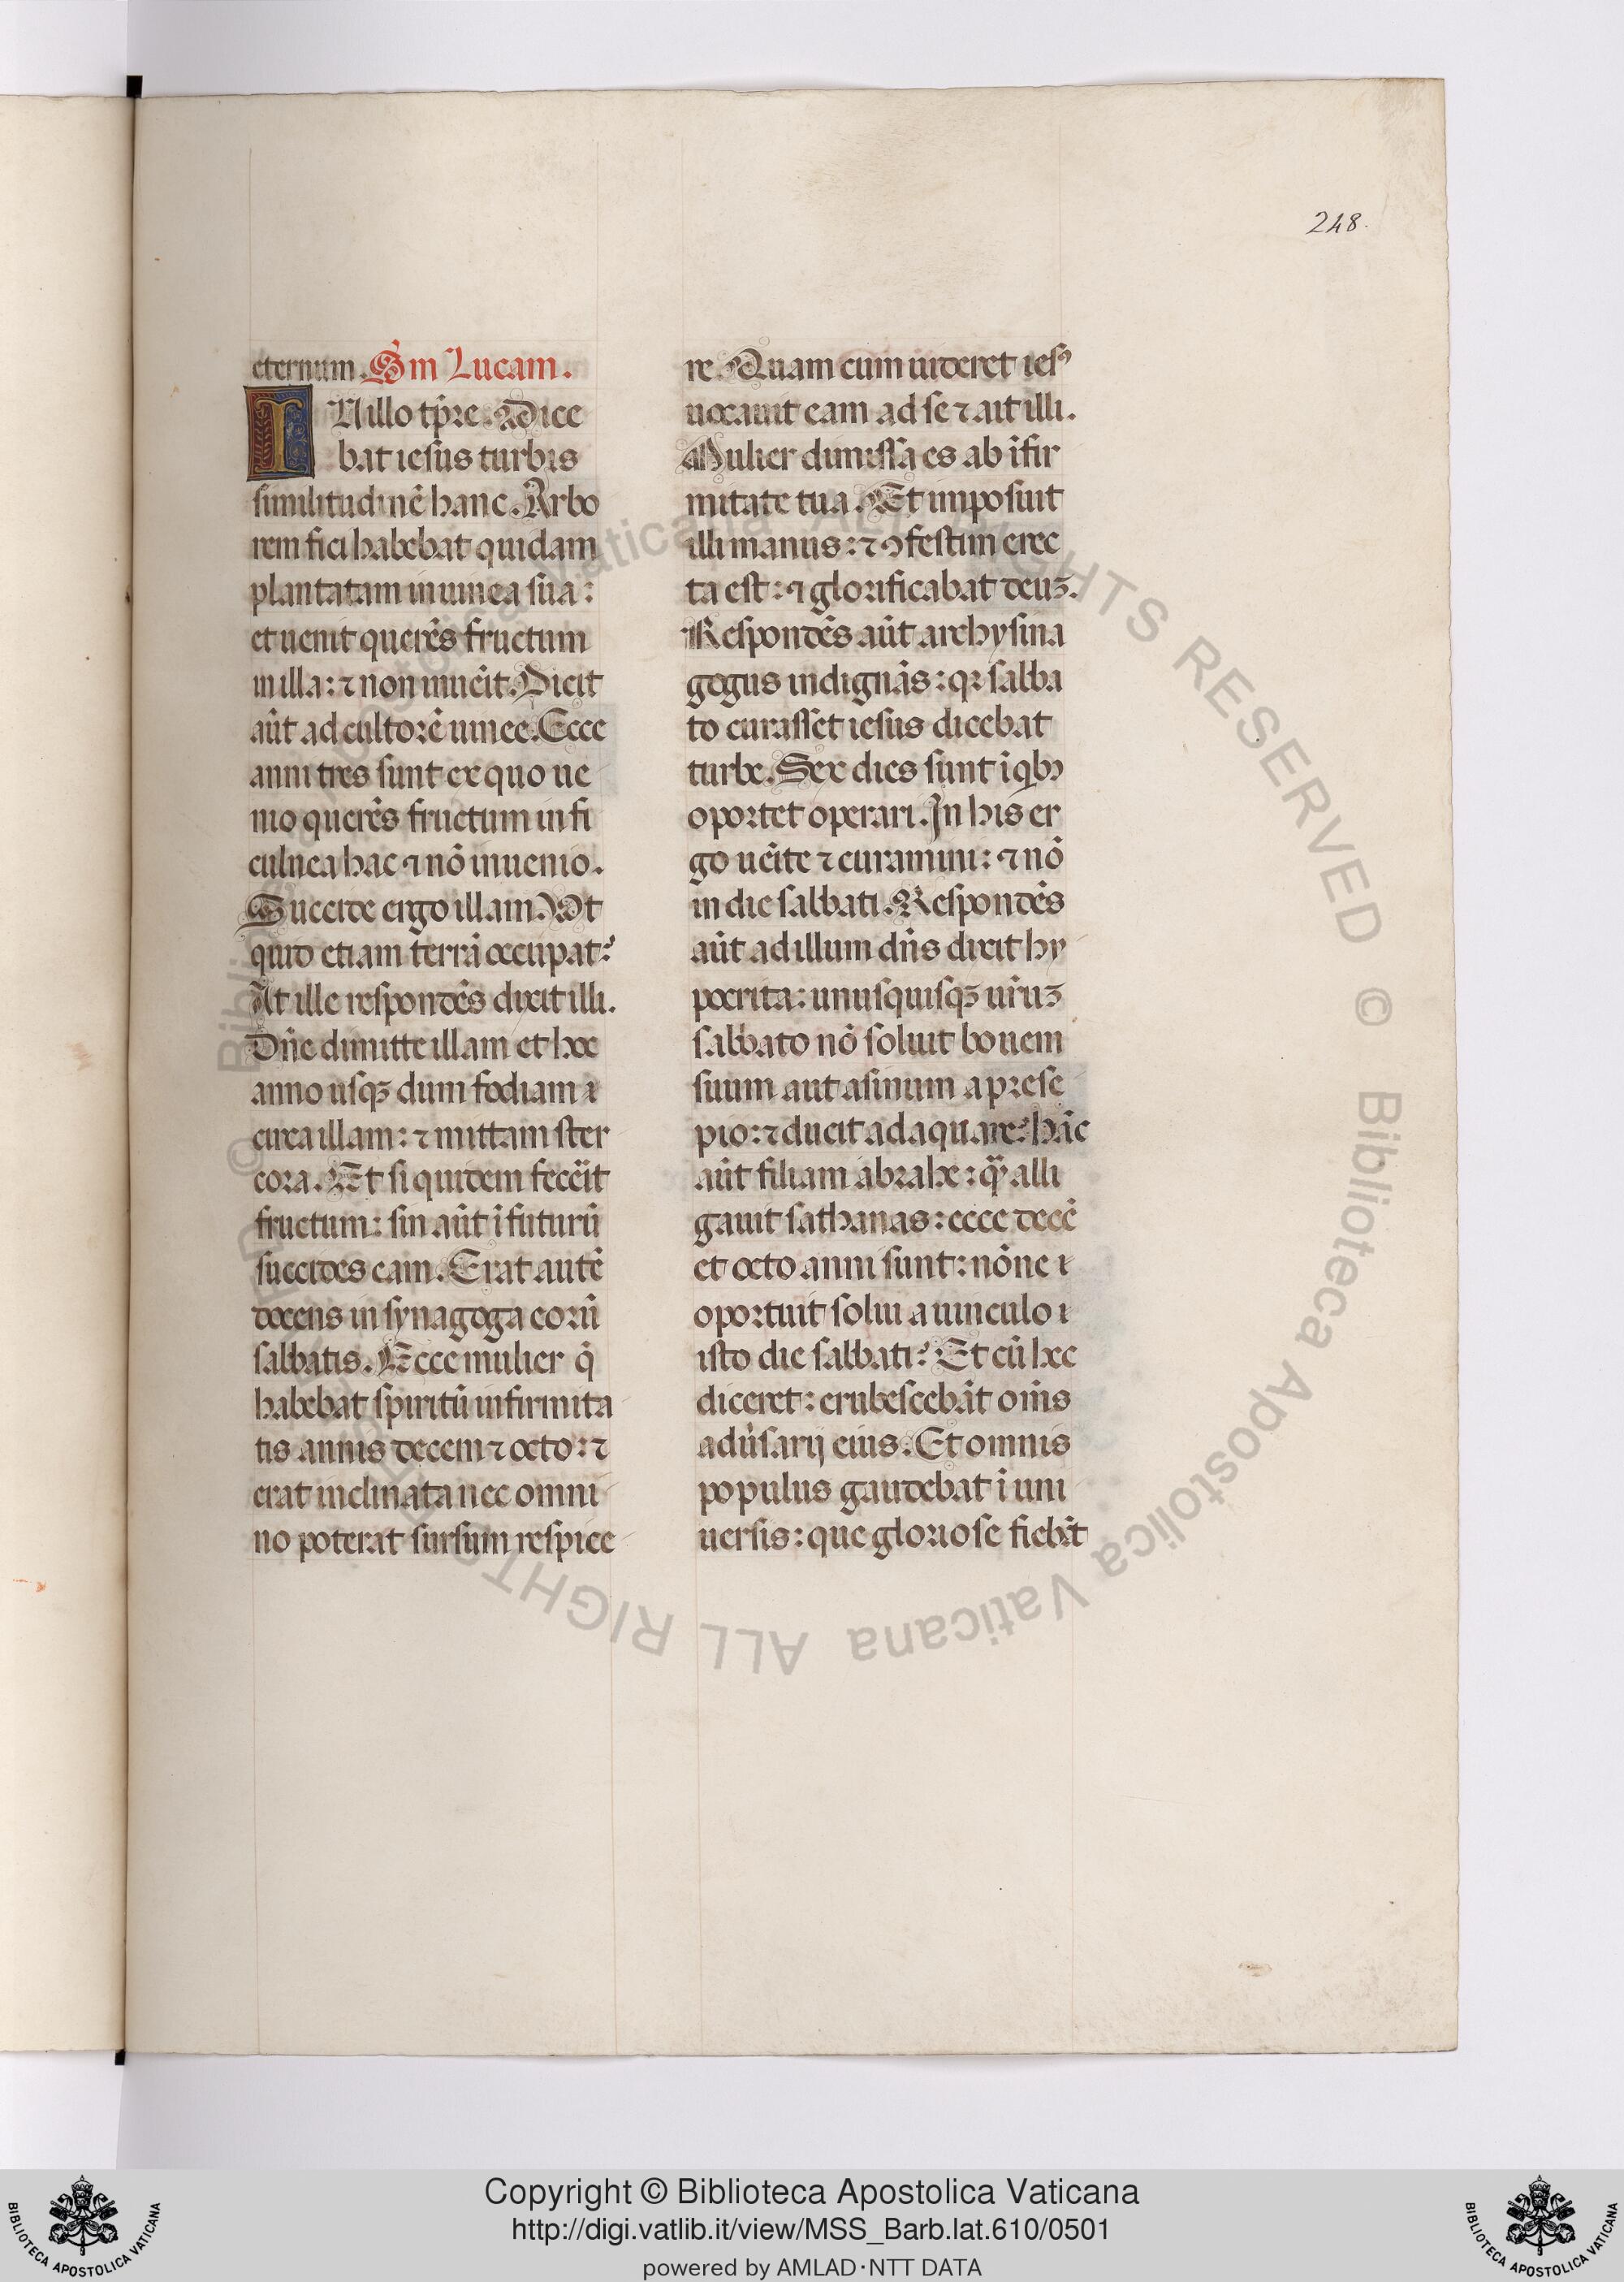 248.
eternum. Sm Lucam.
INillo tp̄re. Dice
bat iesus turbis
similitudinē hanc. Arbo
rem fici habebat quidam
plantatam in uinea sua:
et uenit querēs fructum
in illa: ⁊ non inuēit. Dicit
aūt ad cultorē uinee. Ecce
anni tres sunt ex quo ue
nio querēs fructum in fi
culnea hac ⁊ nō inuenio.
Succide ergo illam. Vt
quid etiam terrā occupat?
At ille respondēs dixit illi.
Dn̄e dimitte illam et hoc
anno usqꝫ dum fodiam
circa illam: ⁊ mittam ster
cora. Et si quidem fecēit
fructum: sin aūt ī futurū
succides eam. Erat autē
docens in synagoga eorū
sabbatis. Ecce mulier q̄
habebat spiritū infirmita
tis annis decem ⁊ octo: ⁊
erat inclinata nec omni
no poterat sursum respice
re. Quam cum uideret iesꝰ
uocauit eam ad se ⁊ ait illi.
Mulier dimissa es ab īfir
mitate tua. Et imposuit
illi manus: ⁊ ꝯfestim erec
ta est: ⁊ glorificabat deuꝫ.
Respondēs aūt archysina
gogus indignās: qꝛ sabba
to curasset iesus dicebat
turbe. Sex dies sunt ī qbꝫ
oportet operari. In his er
go uēite ⁊ curamini: ⁊ nō
in die sabbati. Respondēs
aūt ad illum dn̄s dixit hy
pocrita: unusquisqꝫ ur̄uꝫ
sabbato nō soluit bouem
suum aut asinum a prese
pio: ⁊ ducit adaquare? hāc
aūt filiam abrahe: q̄ alli
gauit sathanas: ecce decē
et octo anni sunt: nōne
oportuit solui a uinculo
isto die sabbati? Et cū hec
diceret: erubescebāt om̄s
adūsarij eius. Et omnis
populus gaudebat ī uni
uersis: que gloriose fiebāt
© Biblioteca Apostolica Vaticana ALL RIGHTS RESERVED © Biblioteca Apostolica Vaticana ALL RIGHTS
Copyright © Biblioteca Apostolica Vaticana
http://digi.vatlib.it/view/MSS_Barb.lat.610/0501
powered by AMLAD·NTT DATA
BIBLIOTECA APOSTOLICA VATICANA
BIBLIOTECA APOSTOLICA VATICANA